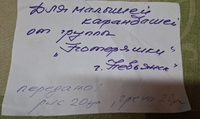 Для малышей
карандашей
от группы
"Потеряшки"
г. Невьянск
передано
рис 20